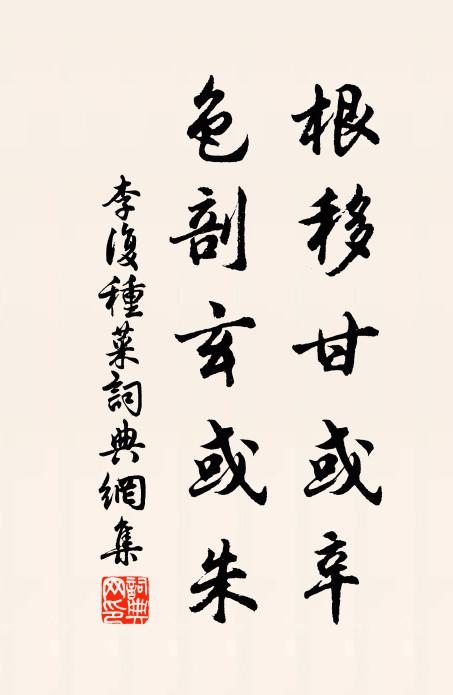 根移甘或辛
色剖玄或朱
李復種菜詞典網集
詞典網印